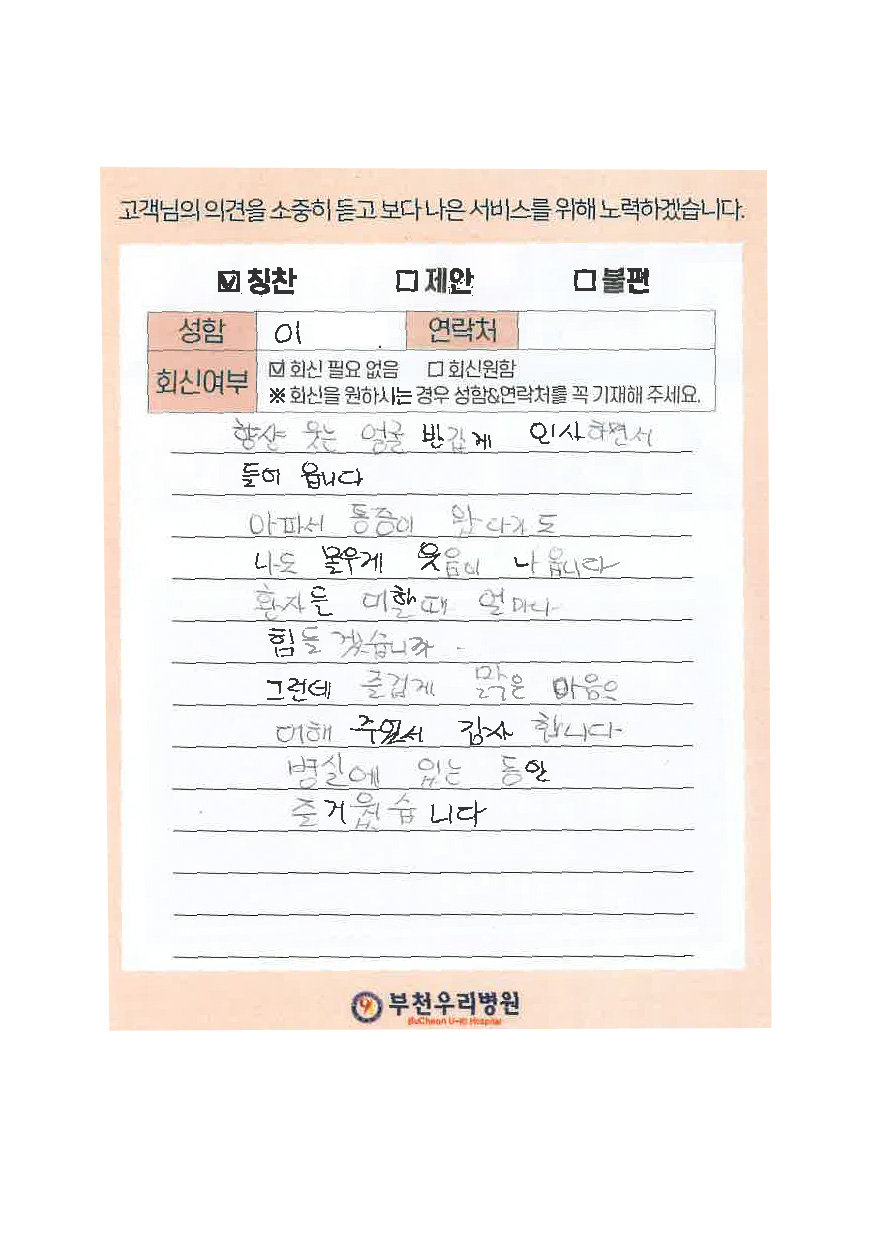 고객님의 의견을 소중히 듣고 보다 나은 서비스를 위해 노력하겠습니다.
☑ 칭찬 ☐ 제안 ☐ 불편
성함 이 연락처
회신여부 ☑ 회신 필요 없음 ☐ 회신원함
※ 회신을 원하시는 경우 성함&연락처를 꼭 기재해 주세요.
항상 웃는 얼굴 반갑게 인사하면서
들어 옵니다
아파서 통증이 왔다가도
나도 몰우게 웃음이 나옵니다
환자들 대할때 얼마나
힘들겠습니까
그런데 즐겁게 맑은 마음으
대해 주워서 감사 합니다
병실에 있는 동안
즐거웠습니다
부천우리병원
BuCheon U-RI Hospital